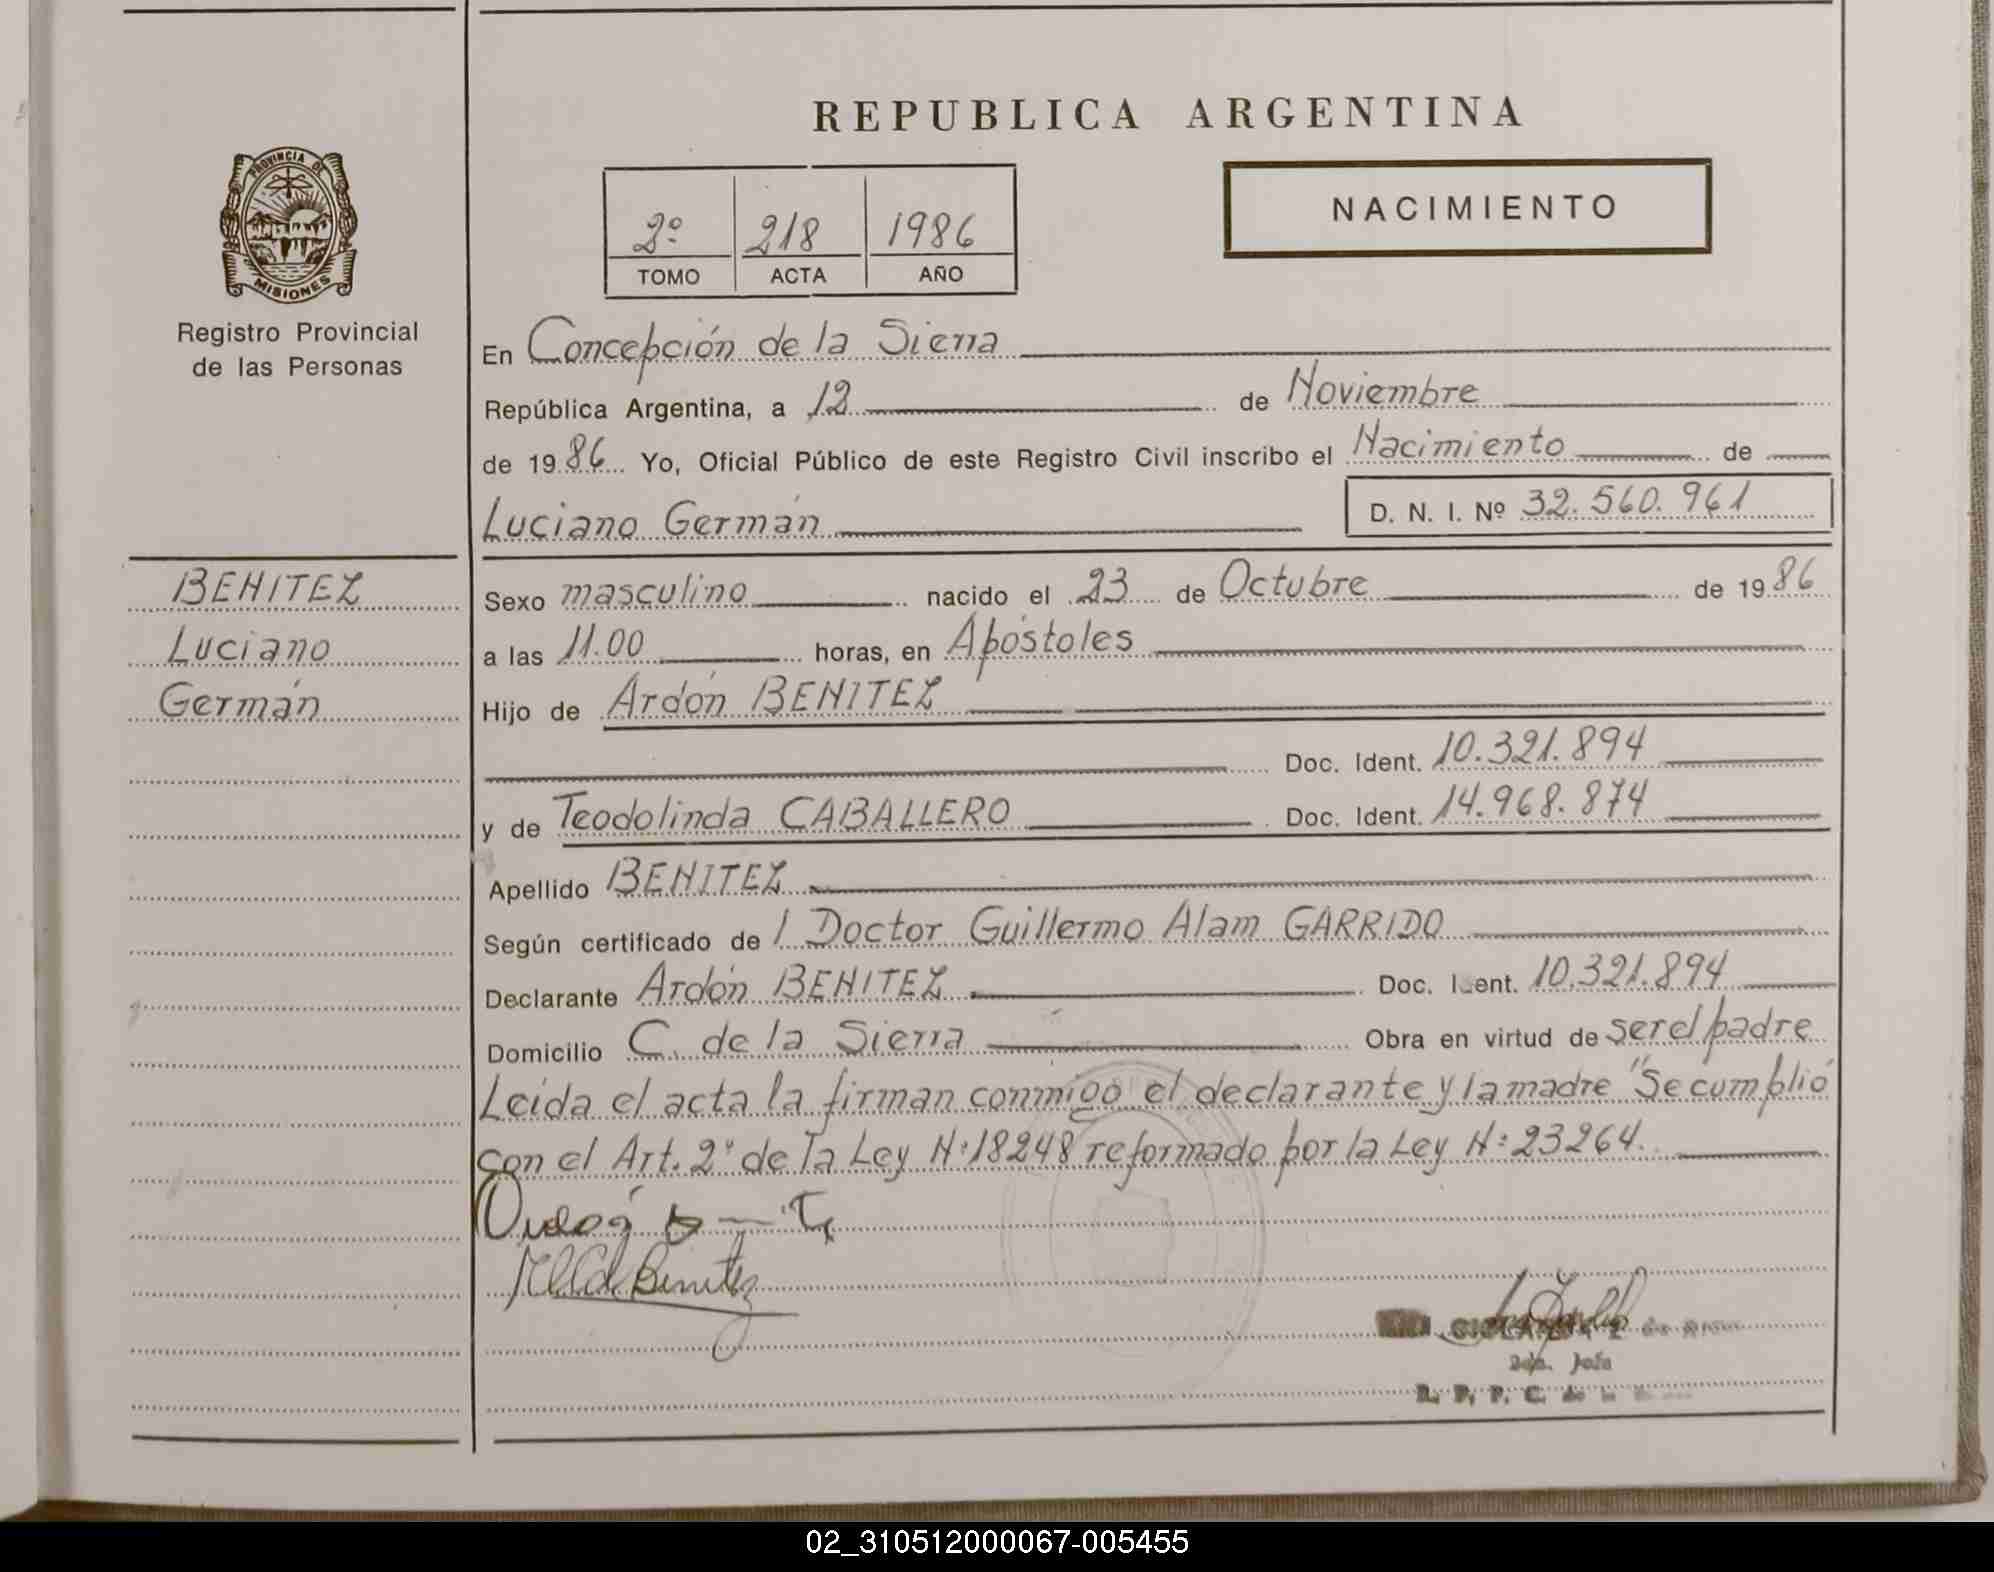 REPUBLICA ARGENTINA
PROVINCIA DE
MISIONES
Registro Provincial
de las Personas
2º 218 1986
TOMO ACTA AÑO
NACIMIENTO
En Concepción de la Sierra
República Argentina, a 12 de Noviembre
de 1986 Yo, Oficial Público de este Registro Civil inscribo el Nacimiento de
Luciano Germán D. N. I. Nº 32.560.961
BENITEZ
Luciano
Germán
Sexo masculino nacido el 23 de Octubre de 1986
a las 11.00 horas, en Apóstoles
Hijo de Ardón BENITEZ
Doc. Ident. 10.321.894
y de Teodolinda CABALLERO Doc. Ident. 14.968.874
Apellido BENITEZ
Según certificado de l Doctor Guillermo Alam GARRIDO
Declarante Ardón BENITEZ Doc. Ident. 10.321.894
Domicilio C. de la Sierra Obra en virtud de ser el padre
Leída el acta la firman conmigo el declarante y la madre "Se cumplió
con el Art. 2º de la Ley N: 18248 reformado por la Ley N: 23264.
Benitez
Jefa
R. P. P. C. de la
02_310512000067-005455